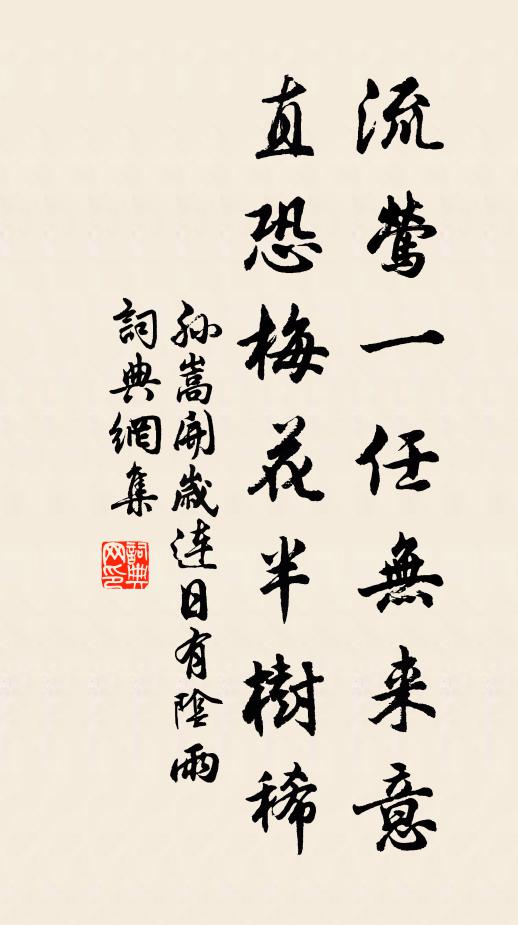 流鶯一任無来意
直恐梅花半樹稀
孫嵩開歲连日有陰雨
詞典網集
詞典网印